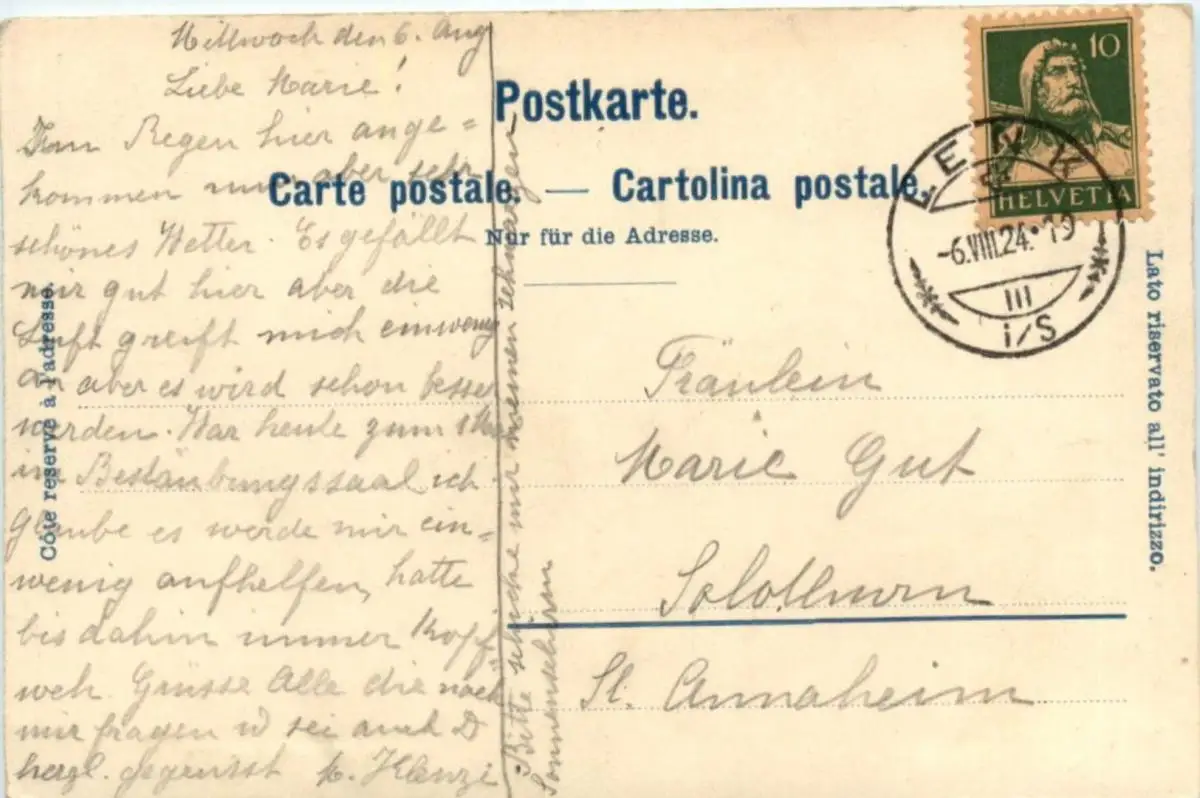 Mittwoch den 6. Aug
Liebe Marie!
Im Regen hier ange=
kommen nun aber sehr
schönes Wetter. Es gefällt
mir gut hier aber die
Luft greift mich einwenig
an aber es wird schon besser
werden. War heute zum
im Bestäubungssaal ich
glaube es werde mir ein=
wenig aufhelfen, hatte
bis dahin immer Kopf
weh. Grüsse Alle die nach
mir fragen u sei auch D
herzl. gegrüsst M.
Bitte schicke mir meinen schwarzen
Sonnenschirm
Postkarte.
Carte postale. — Cartolina postale.
Nur für die Adresse.
Côté réservé à l'adresse.
Lato riservato all' indirizzo.
10
HELVETIA
LENK
-6.VIII.24.·19
III
i/S
Fräulein
Marie Gut
Solothurn
St. Annaheim